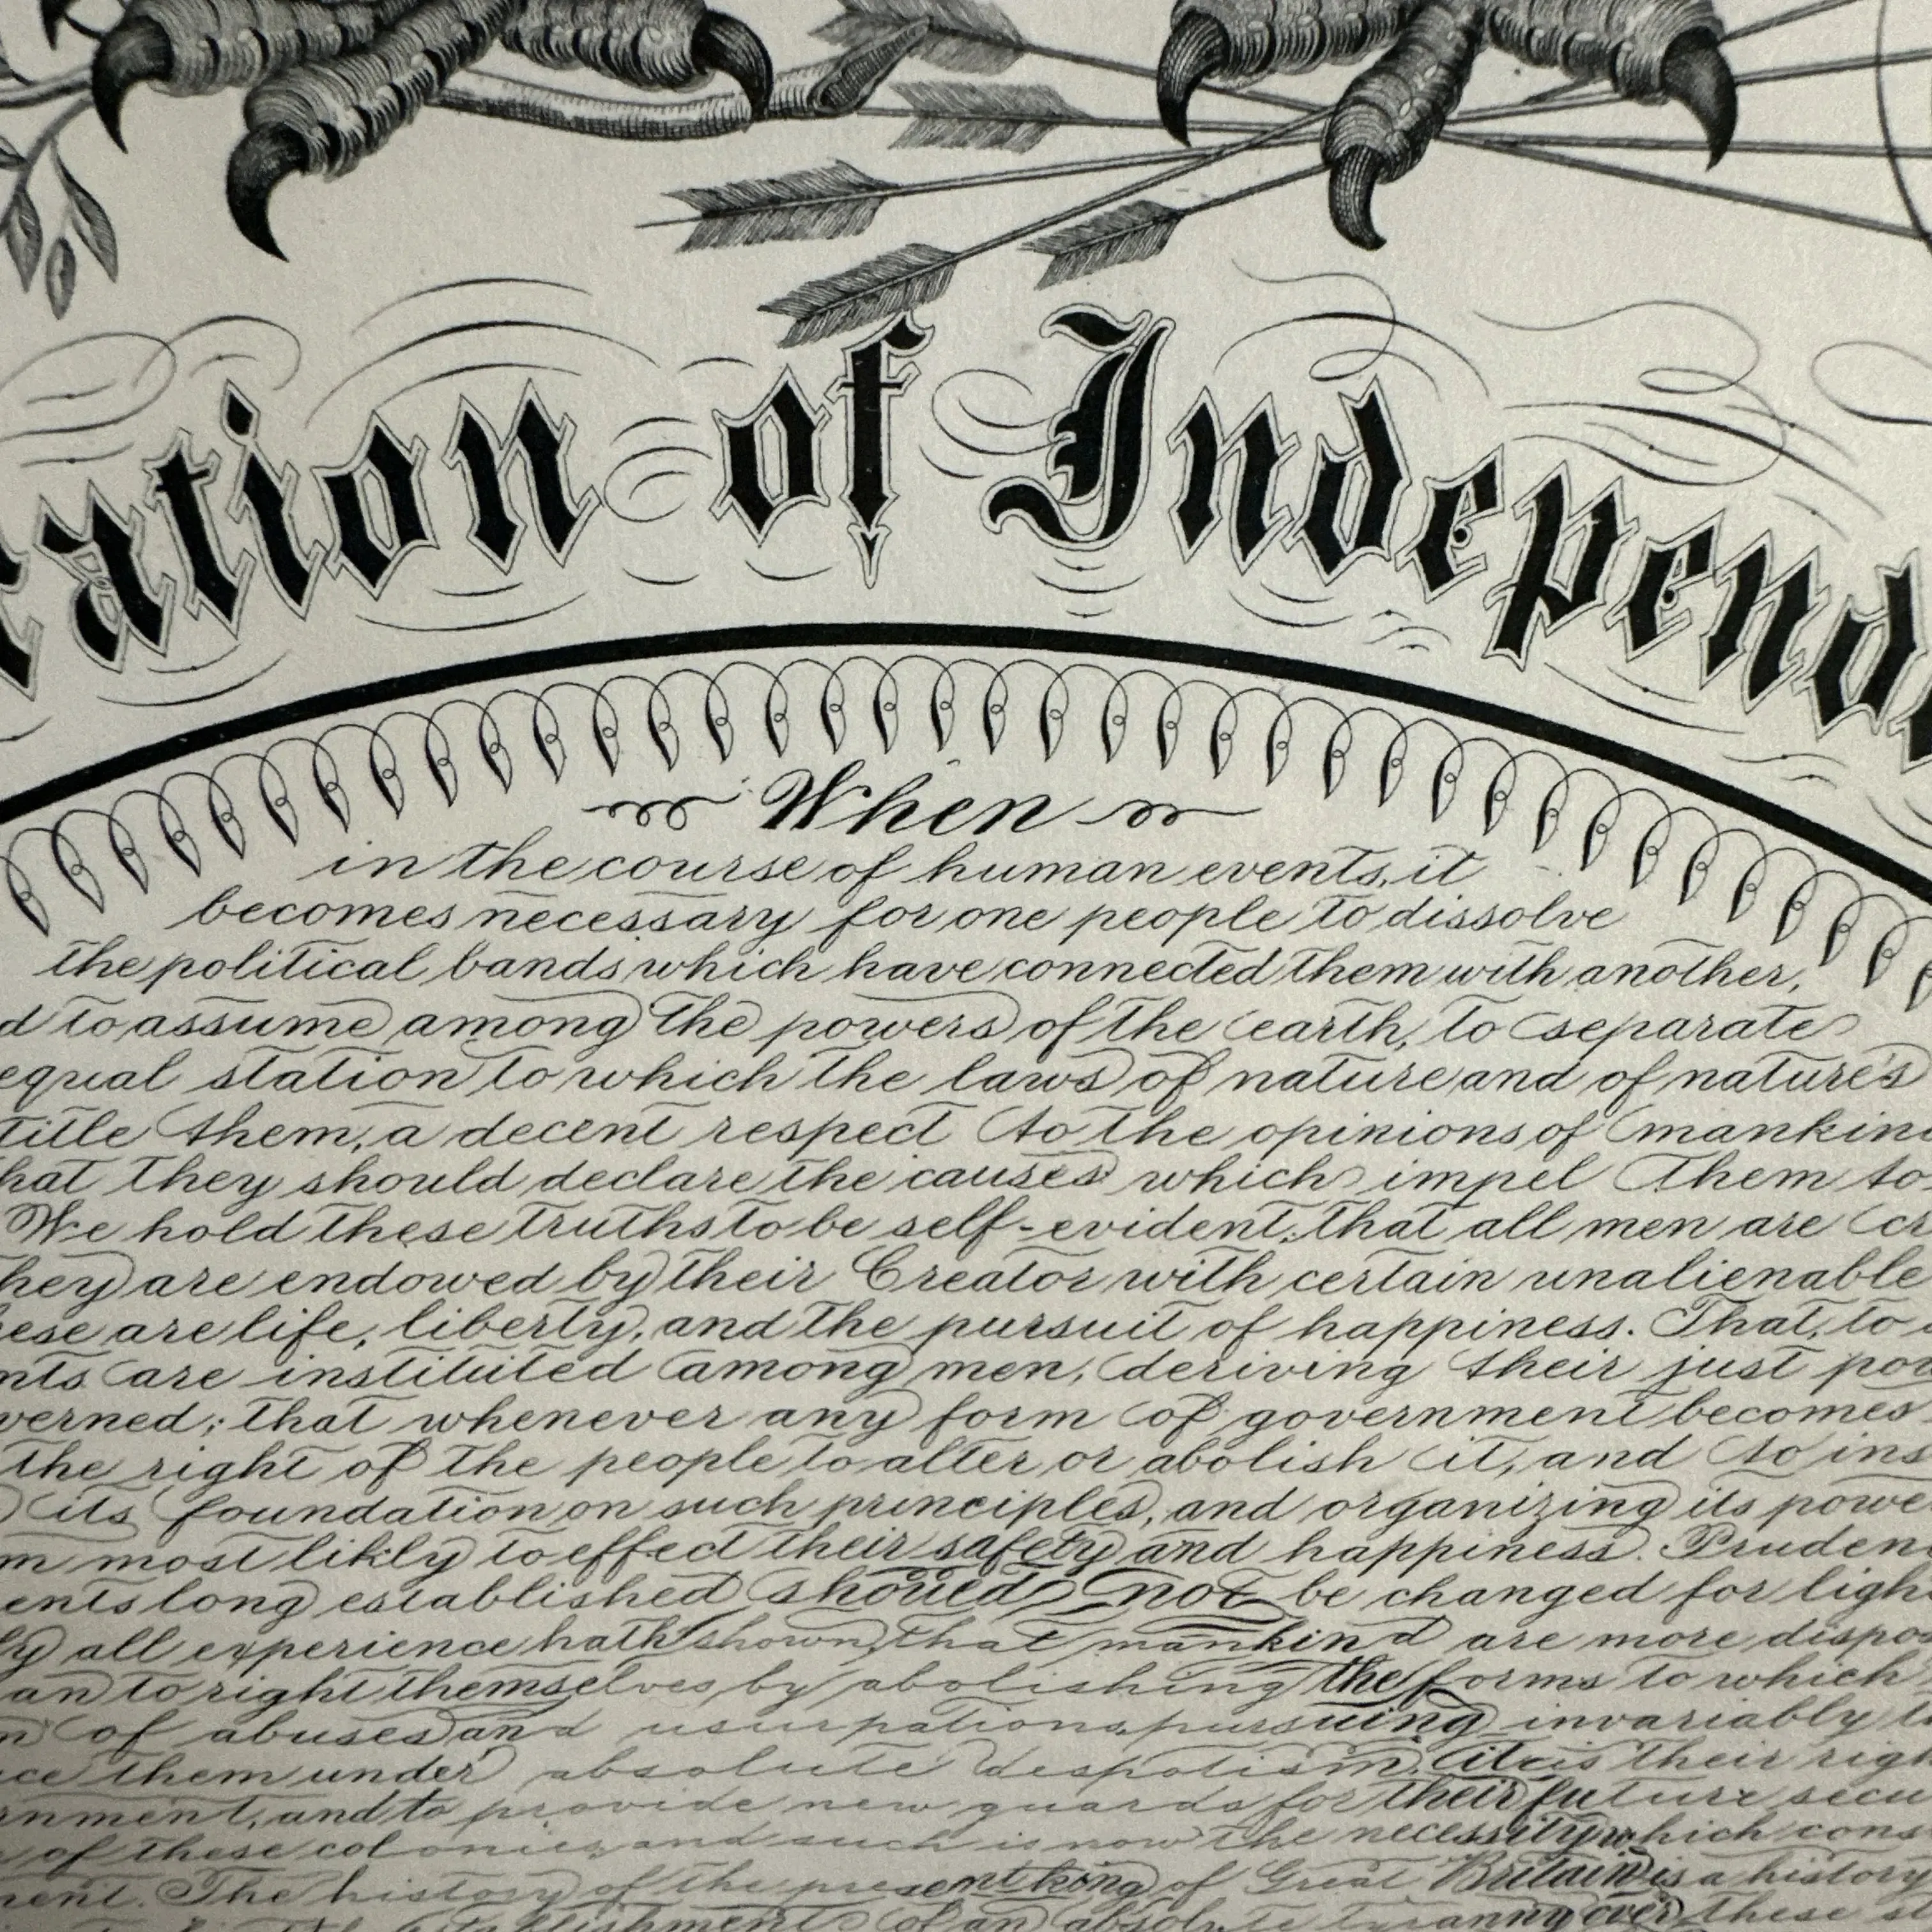 ration of Independ
When
in the course of human events, it
becomes necessary for one people to dissolve
the political bands which have connected them with another,
d to assume among the powers of the earth, to separate
equal station to which the laws of nature and of nature's
title them, a decent respect to the opinions of mankin
hat they should declare the causes which impel them to
We hold these truths to be self-evident; that all men are cr
hey are endowed by their Creator with certain unalienable
ese are life, liberty, and the pursuit of happiness. That, to
nts are instituted among men, deriving their just pow
verned; that whenever any form of government becomes
the right of the people to alter or abolish it, and to ins
its foundation on such principles, and organizing its powe
m most likely to effect their safety and happiness. Pruden
ents long established should not be changed for ligh
ly all experience hath shown, that mankind are more dispo
an to right themselves by abolishing the forms to which
n of abuses and usurpations, pursuing invariably t
ce them under absolute despotism, it is their righ
rnment, and to provide new guards for their future secu
of these colonies, and such is now the necessity which cons
ment. The history of the present king of Great Britain is a history
establishment of an absolute tyranny over these